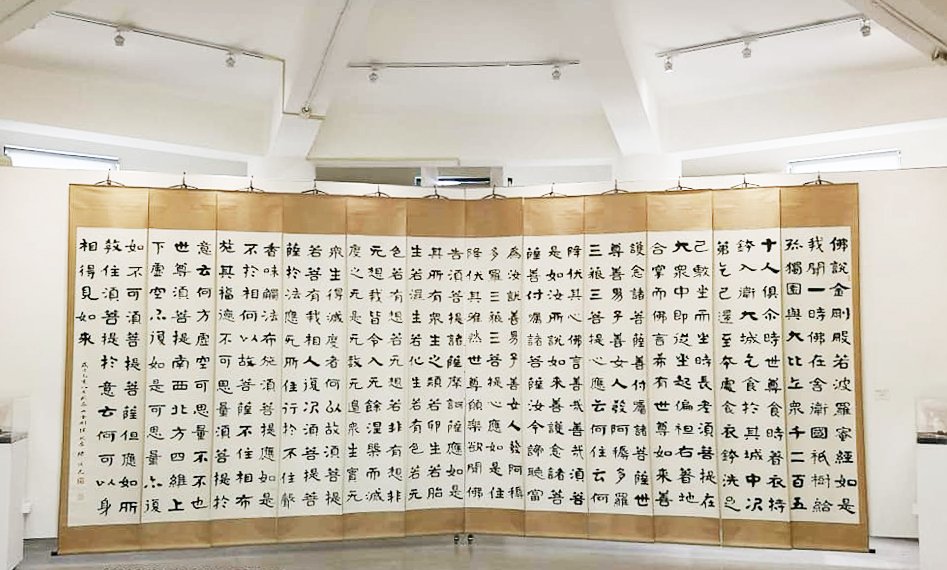 佛說金剛般若波羅蜜經如是
我聞一時佛在舍衛國祇樹給
孤獨園與大比丘眾千二百五
十人俱尒時世尊食時著衣持
鉢入衛大城乞食於其城中次
第乞已還至本處食衣鉢洗足
已敷坐而坐時長老須菩提在
大眾中即從坐起偏袒右著地
合掌而佛言希有世尊如來善
護念諸菩薩善付囑諸菩薩世
尊善男子善女人發阿耨多羅
三藐三菩提心應云何住云何
降伏其心佛言善哉善哉須菩
如汝所說如來善護念諸菩
薩善付囑諸菩薩汝今諦聽當
為汝說善男子善女人發阿耨
多羅三藐三菩提心應如是住
降伏其唯然世尊願樂欲聞佛
告須菩提諸薩摩訶薩應如是
其所有眾生之類若卵生若胎
生若濕生若化生若有色若无
色若有想若无想若非有想非
无想我皆令入无餘涅槃而滅
度之无量无數无邊眾生實无
眾生得滅度者何以故須菩提
若菩有我相人復次須菩提菩
薩於法應无所住行於不住聲
香味觸法布施須菩提應如是
不於相何以故薩不住相布
施其福德不可思量須菩提於
意云何方虛空可思量不不也
世尊須菩提南西北方四維上
下虛空亦復如是可思量亦復
如不可須菩提菩薩但應如所
教住須菩提於意云何可以身
相得見如來